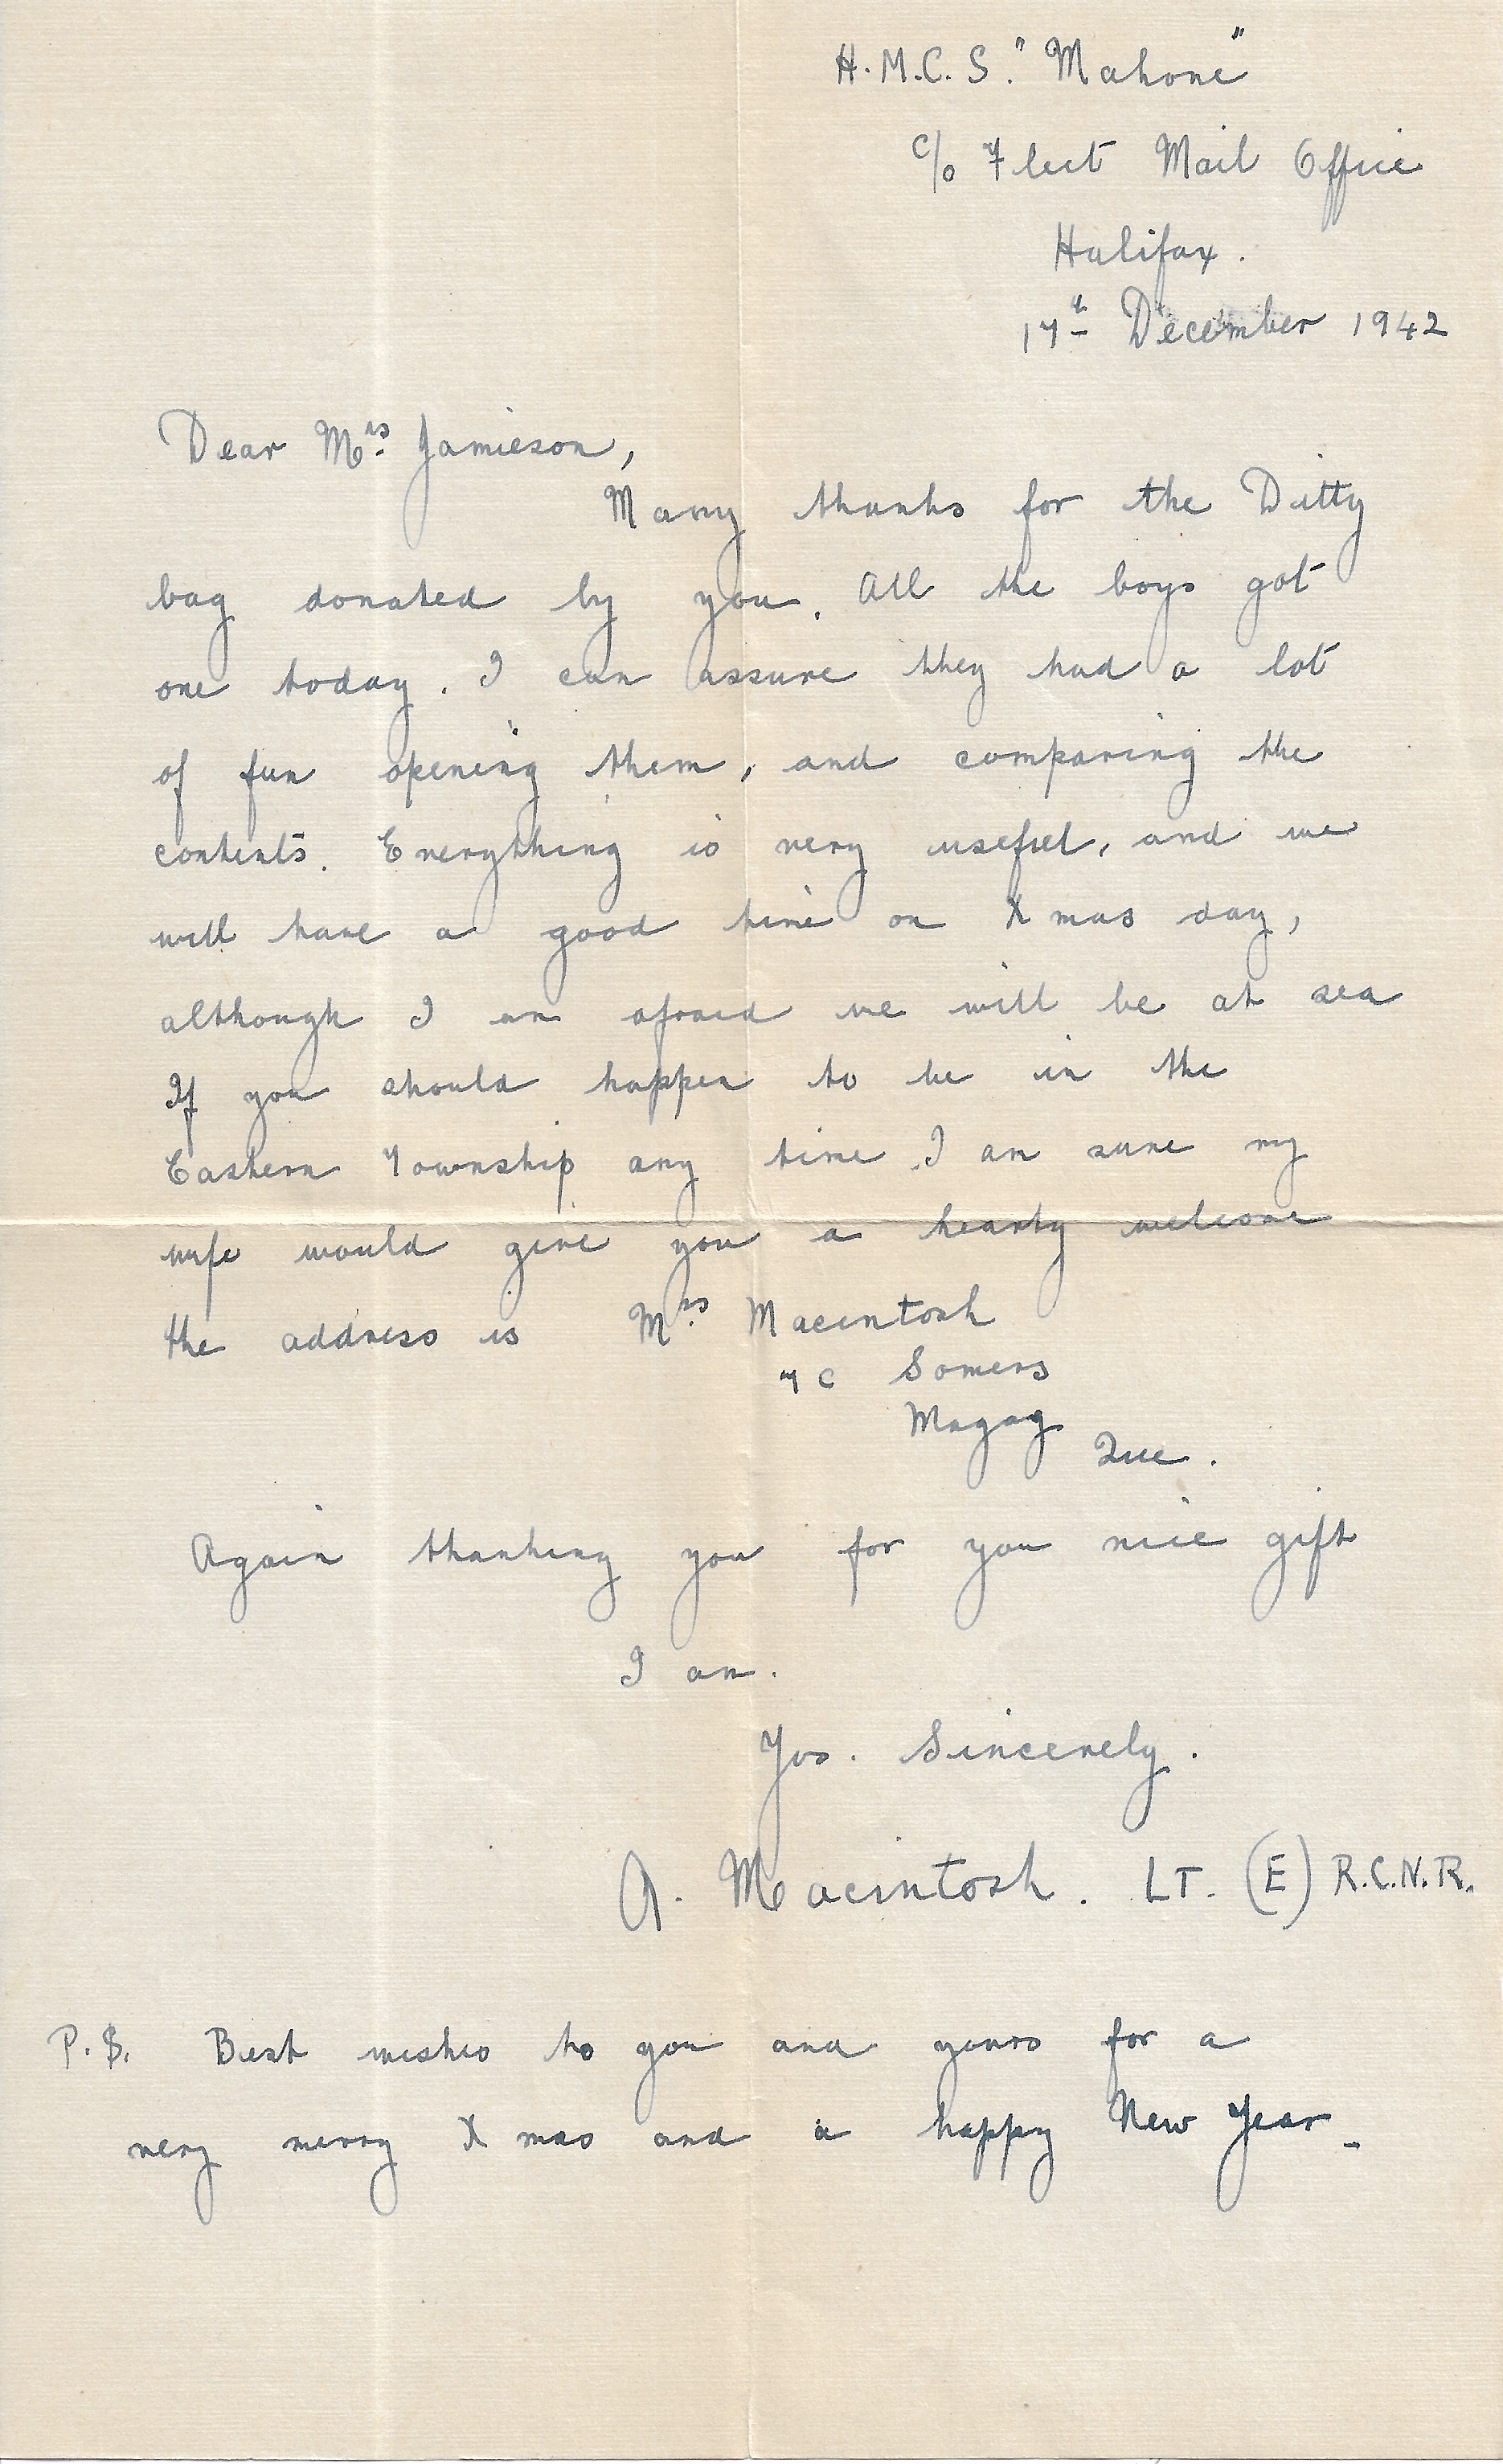 H.M.C.S. "Mahone"
c/o Fleet Mail Office
Halifax.
17th December 1942
Dear Mrs. Jamieson,
Many thanks for the Ditty
bag donated by you. All the boys got
one today. I can assure they had a lot
of fun opening them, and comparing the
contents. Everything is very useful, and we
will have a good time on Xmas day,
although I am afraid we will be at sea
If you should happen to be in the
Eastern Township any time I am sure my
wife would give you a hearty welcome
the address is Mrs. Macintosh
7 C Somers
Magog
Que.
Again thanking you for you nice gift
I am.
Yrs. Sincerely.
A. Macintosh. LT. (E) R.C.N.R.
P.S. Best wishes to you and yours for a
very merry Xmas and a happy New Year.